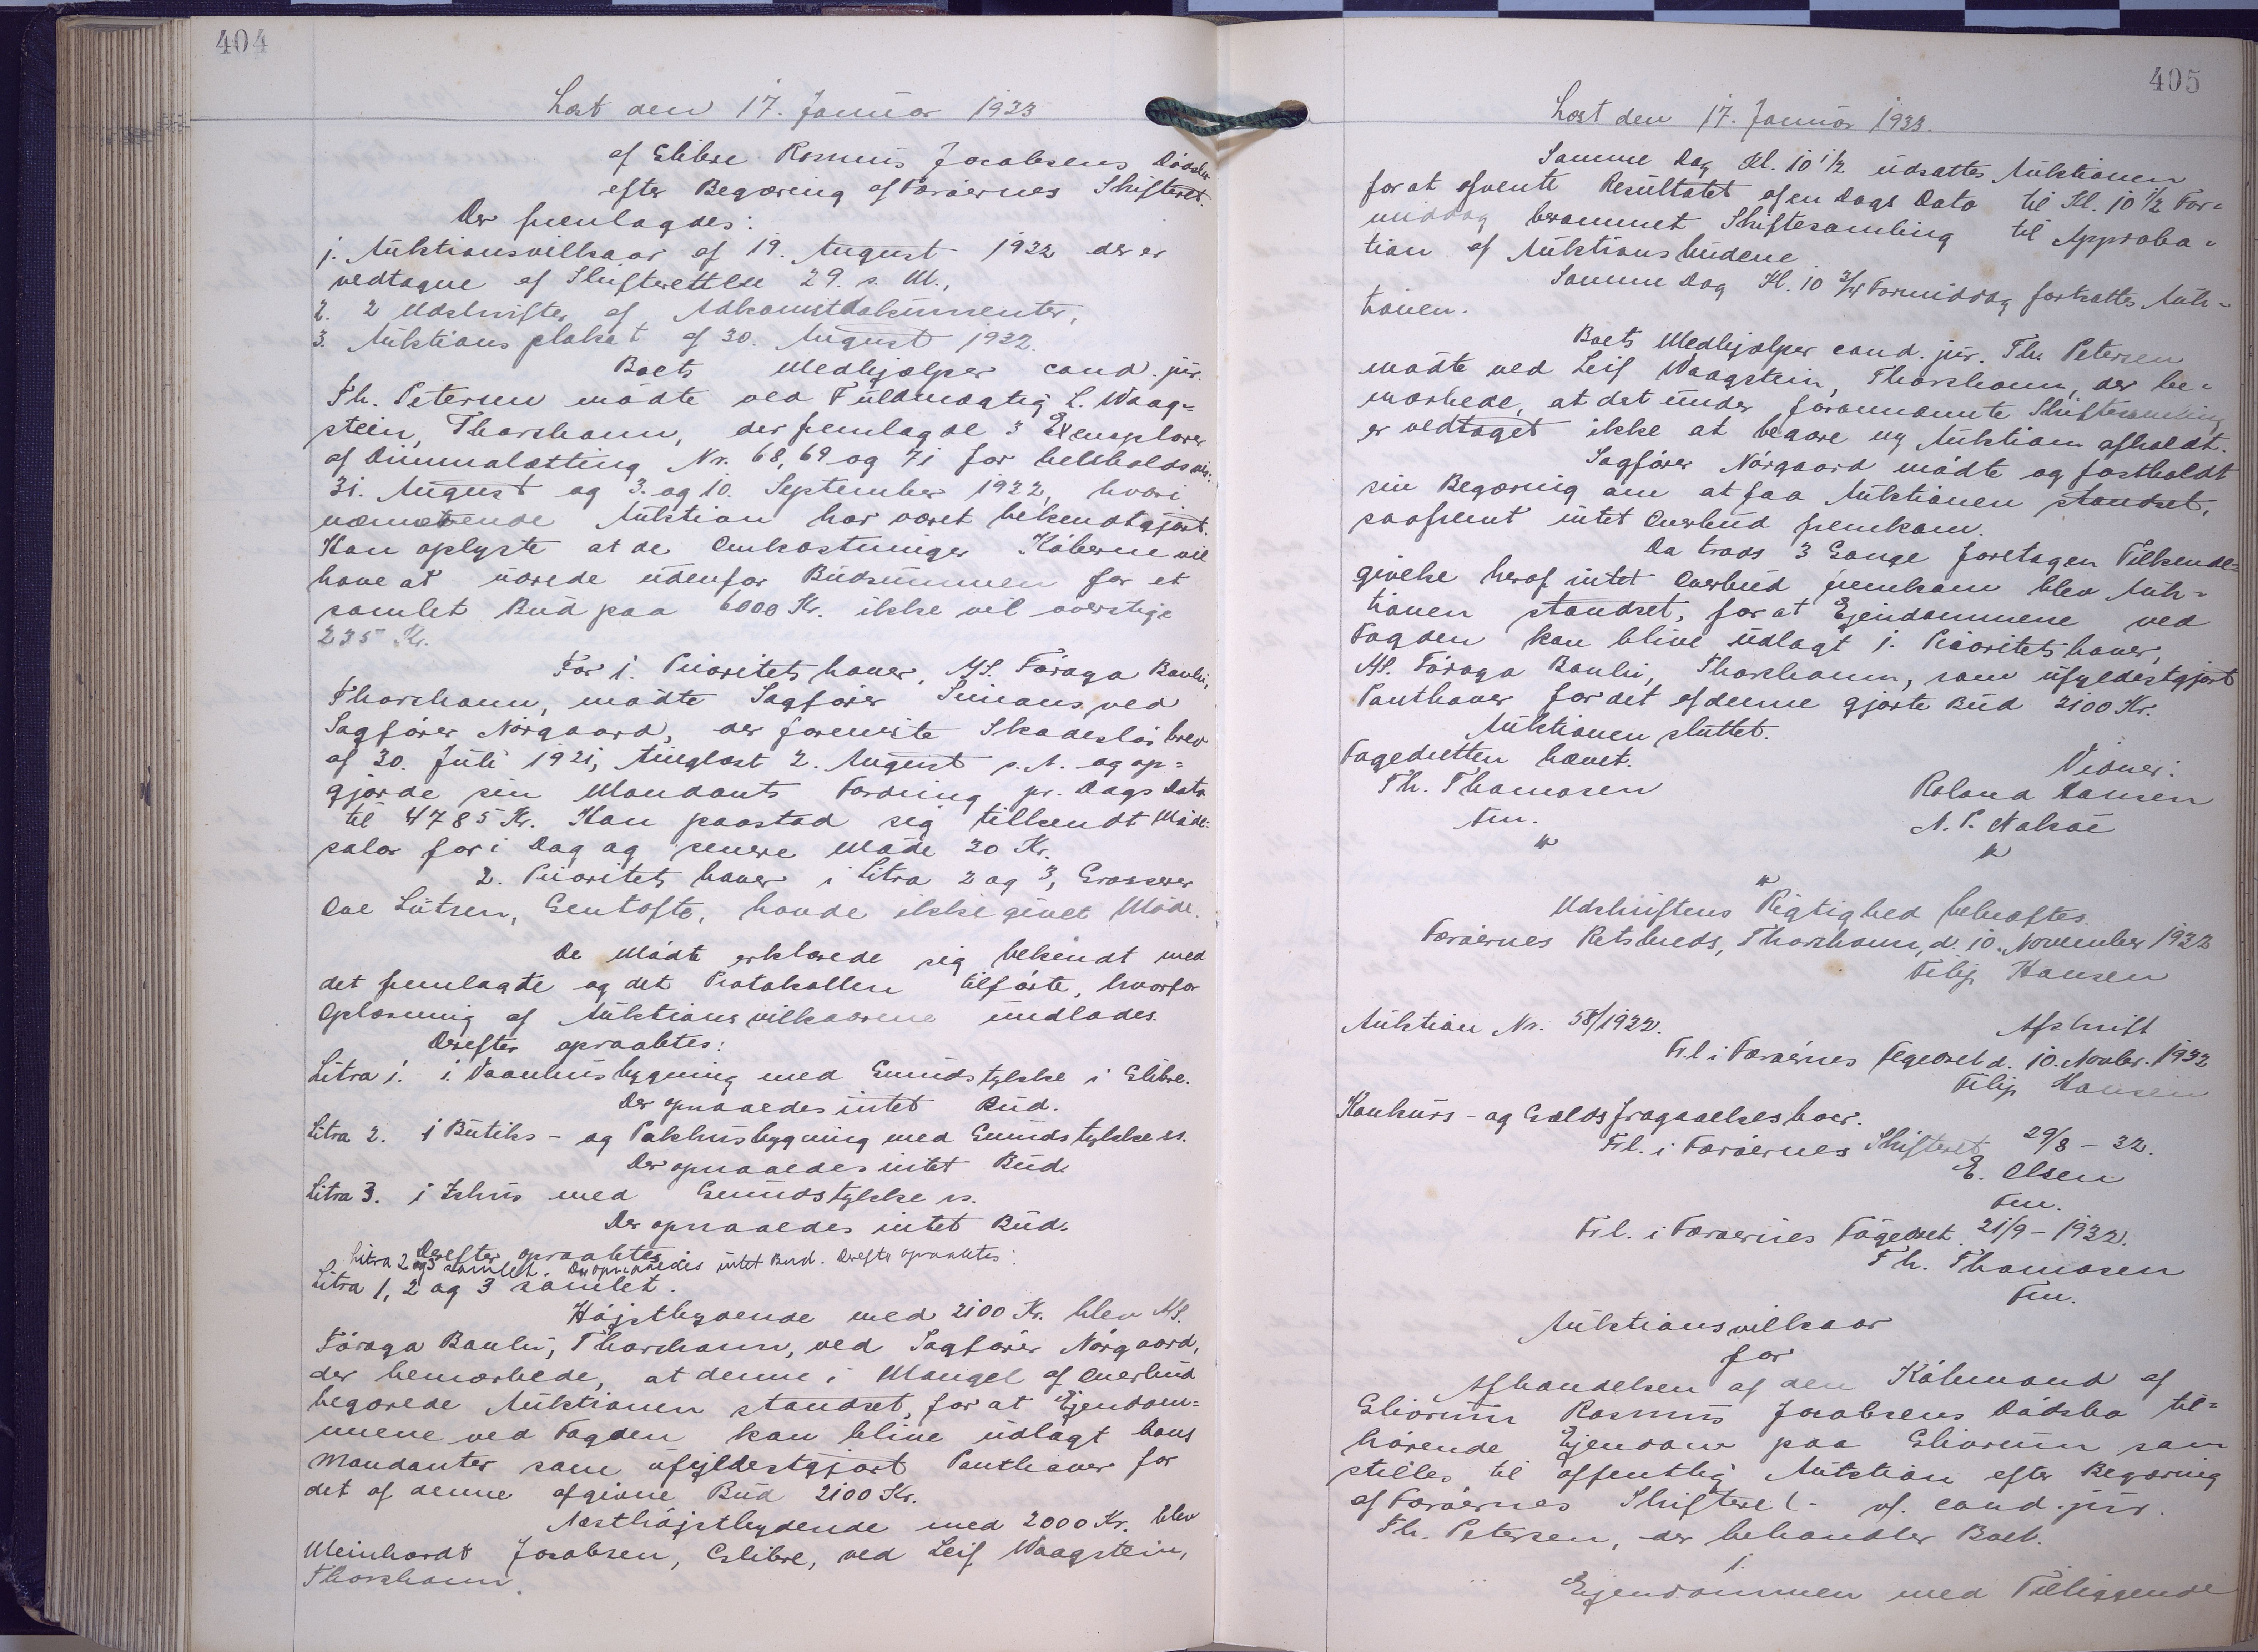 404
Læst den 17. Januar 1933
af Elibre Rasmus Jacobsens Dødsbo
efter Begæring af Færøernes Skifteret.
Der fremlagdes:
1. Auktionsvilkaar af 19. August 1932 der er
vedtagne af Skifteretten 29. s. M.,
2. 2 Udskrifter af Adkomstdokumenter,
3. Auktionsplakat af 30. August 1932.
Boets Medhjælper cand. jur.
Th. Petersen mødte ved Fuldmægtig L. Waag=
stein, Thorshavn, der fremlagde 3 Exemplarer
af Dimmalætting Nr. 68, 69 og 71 for henholdsvis
31. August og 3. og 10. September 1932, hvori
nærværende Auktion har været bekendtgjort.
Han oplyste at de Omkostninger Køberne vil
have at udrede udenfor Budsummen for et
samlet Bud paa 6000 Kr. ikke vil overstige
235 Kr.
For 1. Prioritetshaver, A/S. Føroya Banki,
Thorshavn, mødte Sagfører Simons, ved
Sagfører Nórgaard, der foreviste Skadesløsbrev
af 30. Juli 1921, tinglæst 2. August s. A. og op=
gjorde sin Mandants Fordring pr. Dags Dato
til 4785 Kr. Han paastod sig tilkendt Møde=
salær for i Dag og senere Møde 20 Kr.
2. Prioritetshaver i Litra 2 og 3, Grosserer
Ove Lützen, Gentofte, havde ikke givet Møde.
De Mødte erklærede sig bekendt med
det fremlagte og det Protokollen tilførte, hvorfor
Oplæsning af Auktionsvilkaarene undlades.
Derefter opraabtes:
Litra 1. 1 Vaanhusbygning med Grundstykke i Elibre.
Der opnaaedes intet Bud.
Litra 2. 1 Butiks- og Pakhusbygning med Grundstykke ss.
Der opnaaedes intet Bud.
Litra 3. 1 Ishus med Grundstykke ss.
Der opnaaedes intet Bud.
Derefter opraabtes
Litra 2 og 3 samlet. Der opnaaedes intet Bud. Derefter opraabtes:
Litra 1, 2 og 3 samlet.
Højstbydende med 2100 Kr. blev A/S.
Føroya Banki, Thorshavn, ved Sagfører Nórgaard,
der bemærkede, at denne i Mangel af Overbud
begærede Auktionen standset, for at Ejendom=
mene ved Fogden kan blive udlagt hans
Mandanter som ufyldestgjort Panthaver for
det af denne afgivne Bud 2100 Kr.
Næsthøjstbydende med 2000 Kr. blev
Meinhardt Jacobsen, Eslibre, ved Leif Waagstein,
Thorshavn.
405
Læst den 17. Januar 1933.
Samme Dag Kl. 10 1/2 udsattes Auktionen
for at afvente Resultatet af en Dags Dato til Kl. 10 1/2 For=
middag berammet Skiftesamling til Approba=
tion af Auktionsbudene
Samme Dag Kl. 10 3/4 Formiddag fortsattes Auk=
tionen.
Boets Medhjælper cand. jur. Th. Petersen
mødte ved Leif Waagstein, Thorshavn, der be=
mærkede, at det under forannævnte Skiftesamling
er vedtaget ikke at begære ny Auktion afholdt.
Sagfører Nórgaard mødte og fastholdt
sin Begæring om at faa Auktionen standset,
saafremt intet Overbud fremkom.
Da trods 3 Gange foretagen Tilkende=
givelse herof intet Overbud fremkom blev Auk=
tionen standset, for at Ejendommene ved
Fogden kan blive udlagt 1. Prioritetshaver,
A/S. Føroya Banki, Thorshavn, som ufyldestgjort
Panthaver for det af denne gjorte Bud 2100 Kr.
Auktionen sluttet.
Fogedretten hævet.
Vidner:
Th. Thomasen
Roland Hansen
Fm.
N. P. Nolsøe
Udskriftens Rigtighed bekræftes.
Færøernes Retskreds, Thorshavn, d. 10. November 1932
Filip Hansen
Auktion Nr. 58/1932.
Afskrift
Frl. i Færøernes Fogedret d. 10. Novbr. 1932
Filip Hansen
Konkurs- og Gældsfragaaelsesboer.
Frl. i Færøernes Skifteret 29/8 - 32.
E. Olsen
Fm.
Frl. i Færøernes Fogedret 21/9 - 1932.
Th. Thomasen
Fm.
Auktionsvilkaar
for
Afhændelsen af den Købmand af
Elivrum Rasmus Jacobsens Dødsbo til=
hørende Ejendom paa Elivrum som
stilles til offentlig Auktion efter Begæring
af Færøernes Skifteret - vf. cand. jur.
Th. Petersen, der behandler Boet.
1.
Ejendommen med Tilliggende